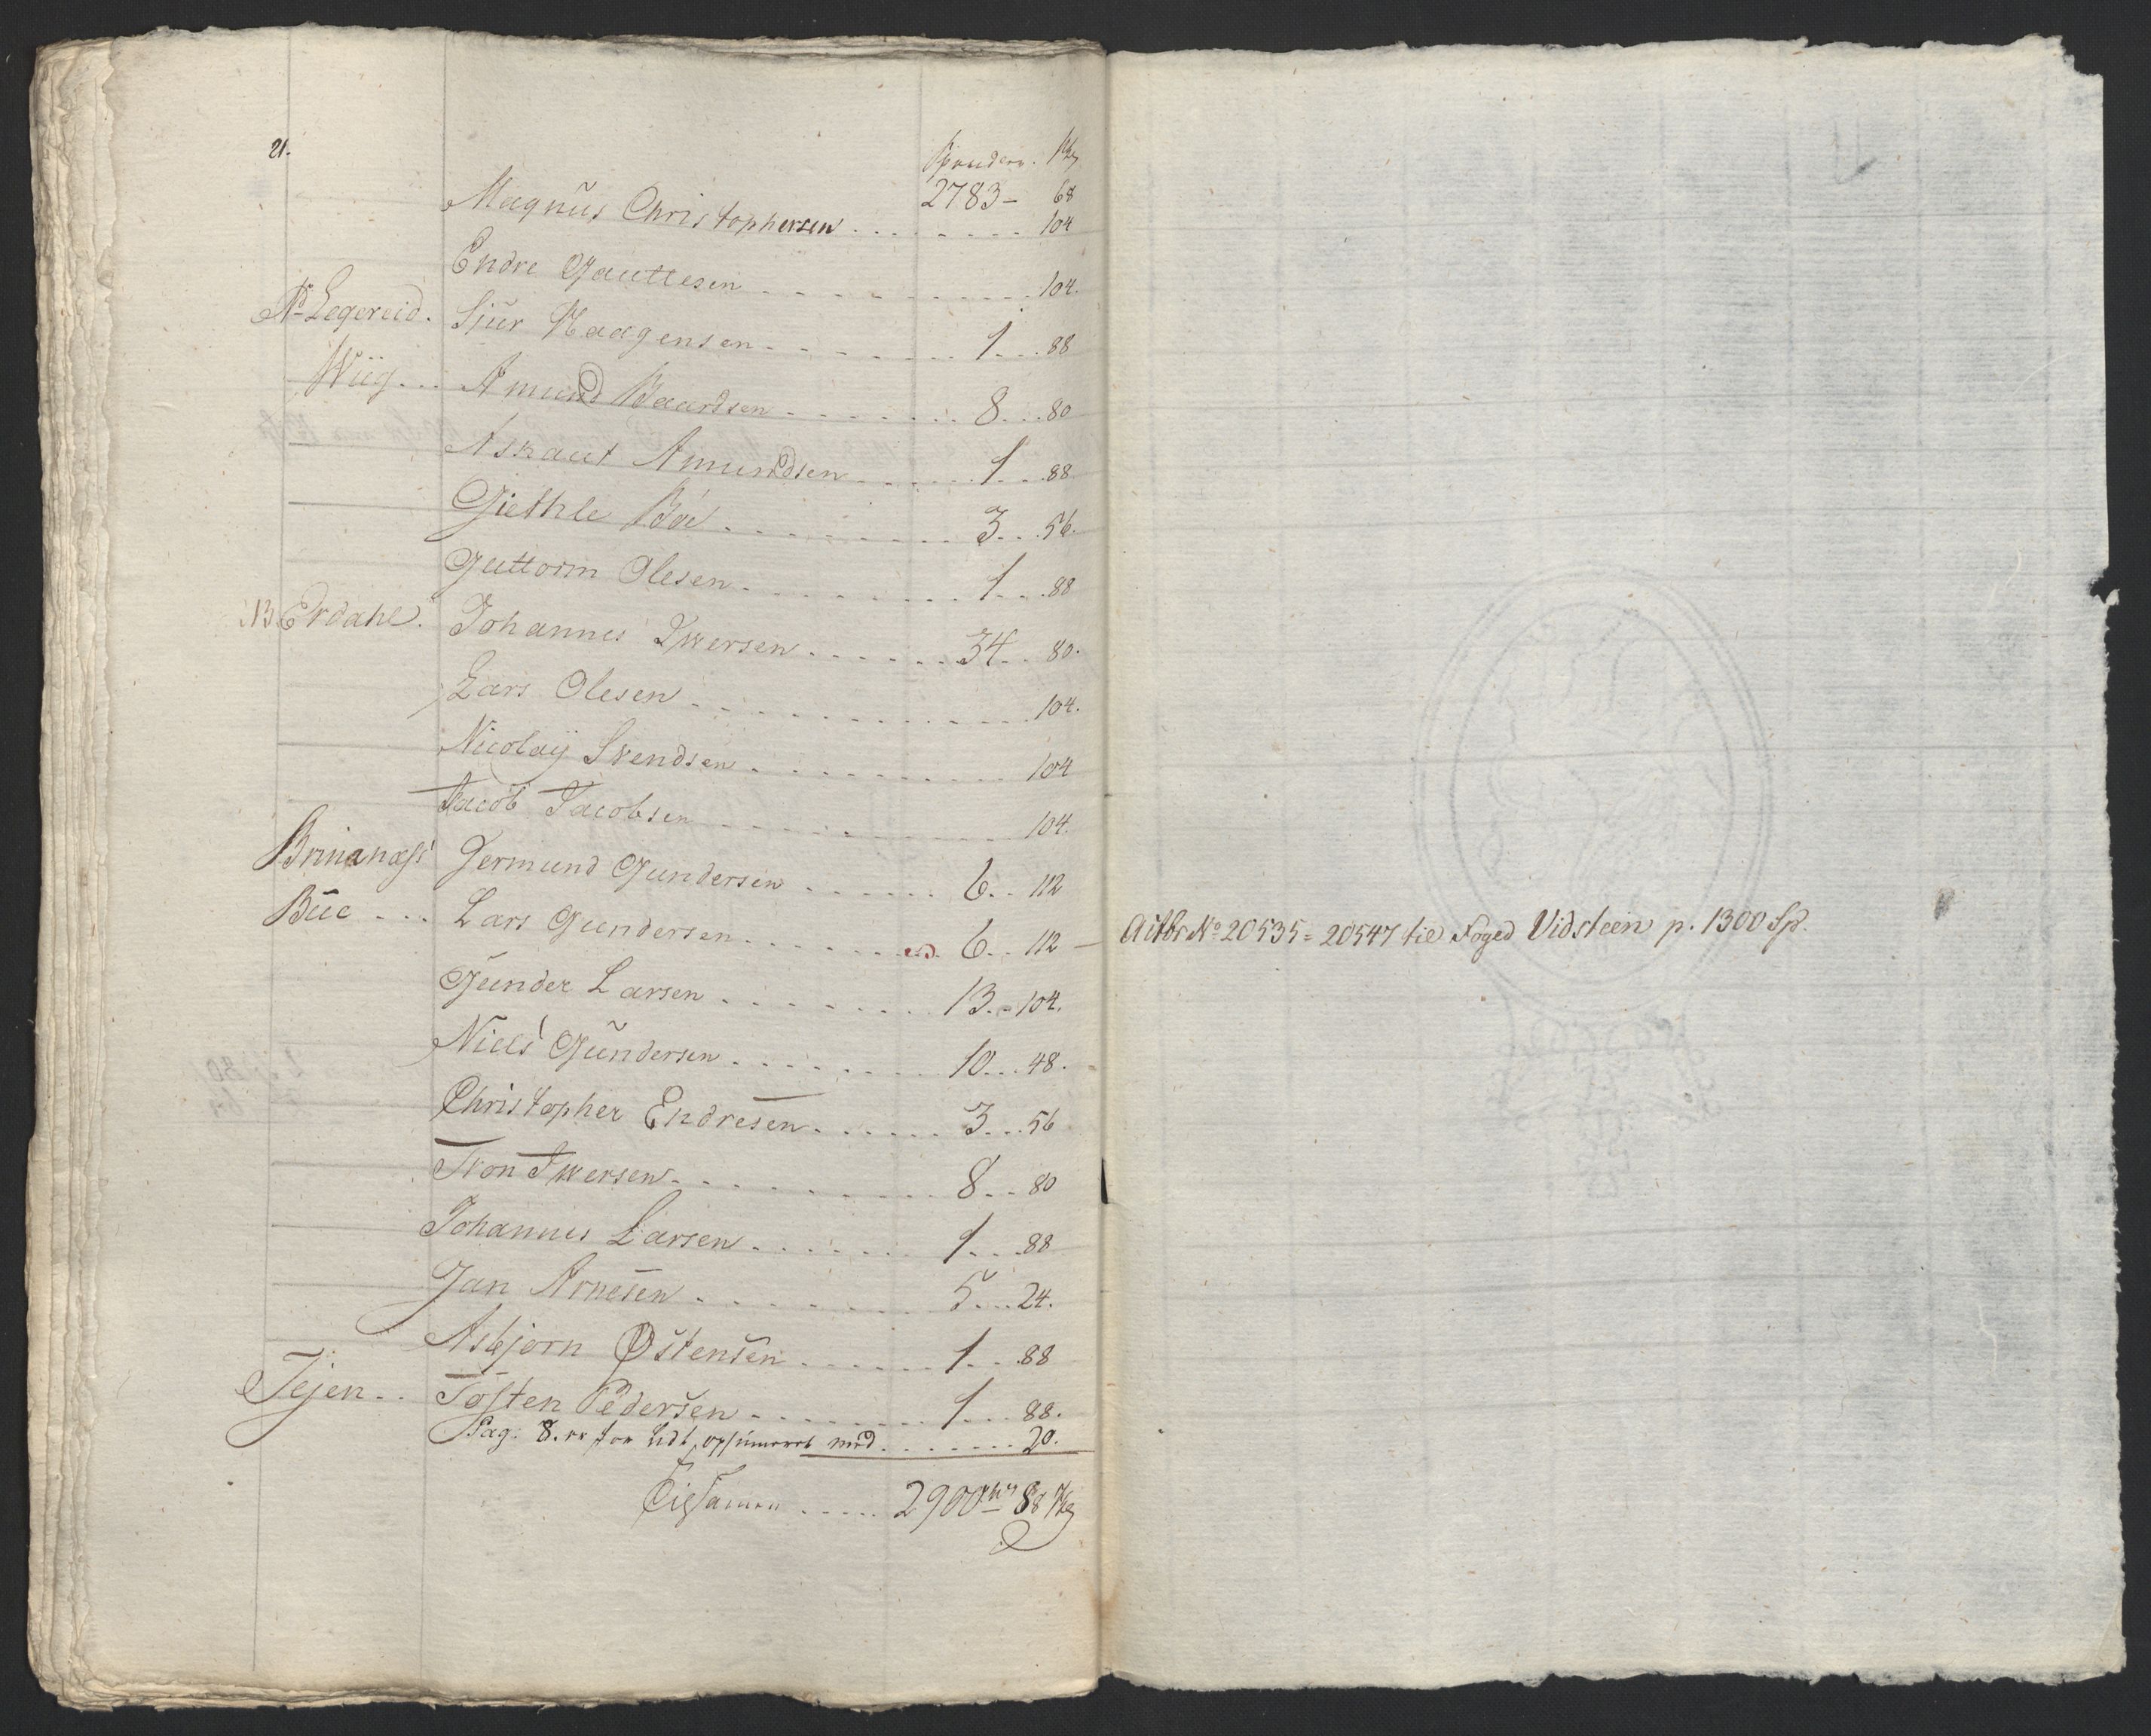 21.
Specier. ß
2783 - 68
Magnus Christophersen . . . . . . 104
Endre Gauttesen . . . . . . 104.
Legereid. Sjur Haagensen . . . . . . 1 . . . 88
Wiig . . . Amund Baardsen . . . . . . 8 . . . 80
Askaut Amundsen . . . . . . 1 . . . 88
Giethle Böe . . . . . . 3 . . . 56.
Guttorm Olesen . . . . . . 1 . . . 88
Erdahl. Johannes Iwersen . . . . . . 34 . . 80.
Lars Olesen . . . . . . 104.
Nicolaÿ Svendsen . . . . . . 104
Jacob Jacobsen . . . . . . 104.
Brimanæss Germund Gundersen . . . . . . 6 . . 112
Bue . . . Lars Gundersen . . . . . . 6 . . 112 -
Gunder Larsen . . . . . . 13 . . 104.
Niels Gundersen . . . . . . 10 . . . 48.
Christopher Endresen . . . . . . 3 . . . 56
Tron Iwersen . . . . . . 8 . . 80
Johannes Larsen . . . . . . 1 . . . 88
Jan Arnesen . . . . . . 5 . . . 24.
Asbjørn Østensen . . . . . . 1 . . . 88
Tejen . . Tosten Pedersen . . . . . . 1 . . . 88.
Pag: 8. er for lidt opsumeret med . . . . . . 20.
Tilsamen . . . . . 2900 88 ß
Actbr No 20535 = 20547 til Foged Vidsteen p. 1300 Sp.